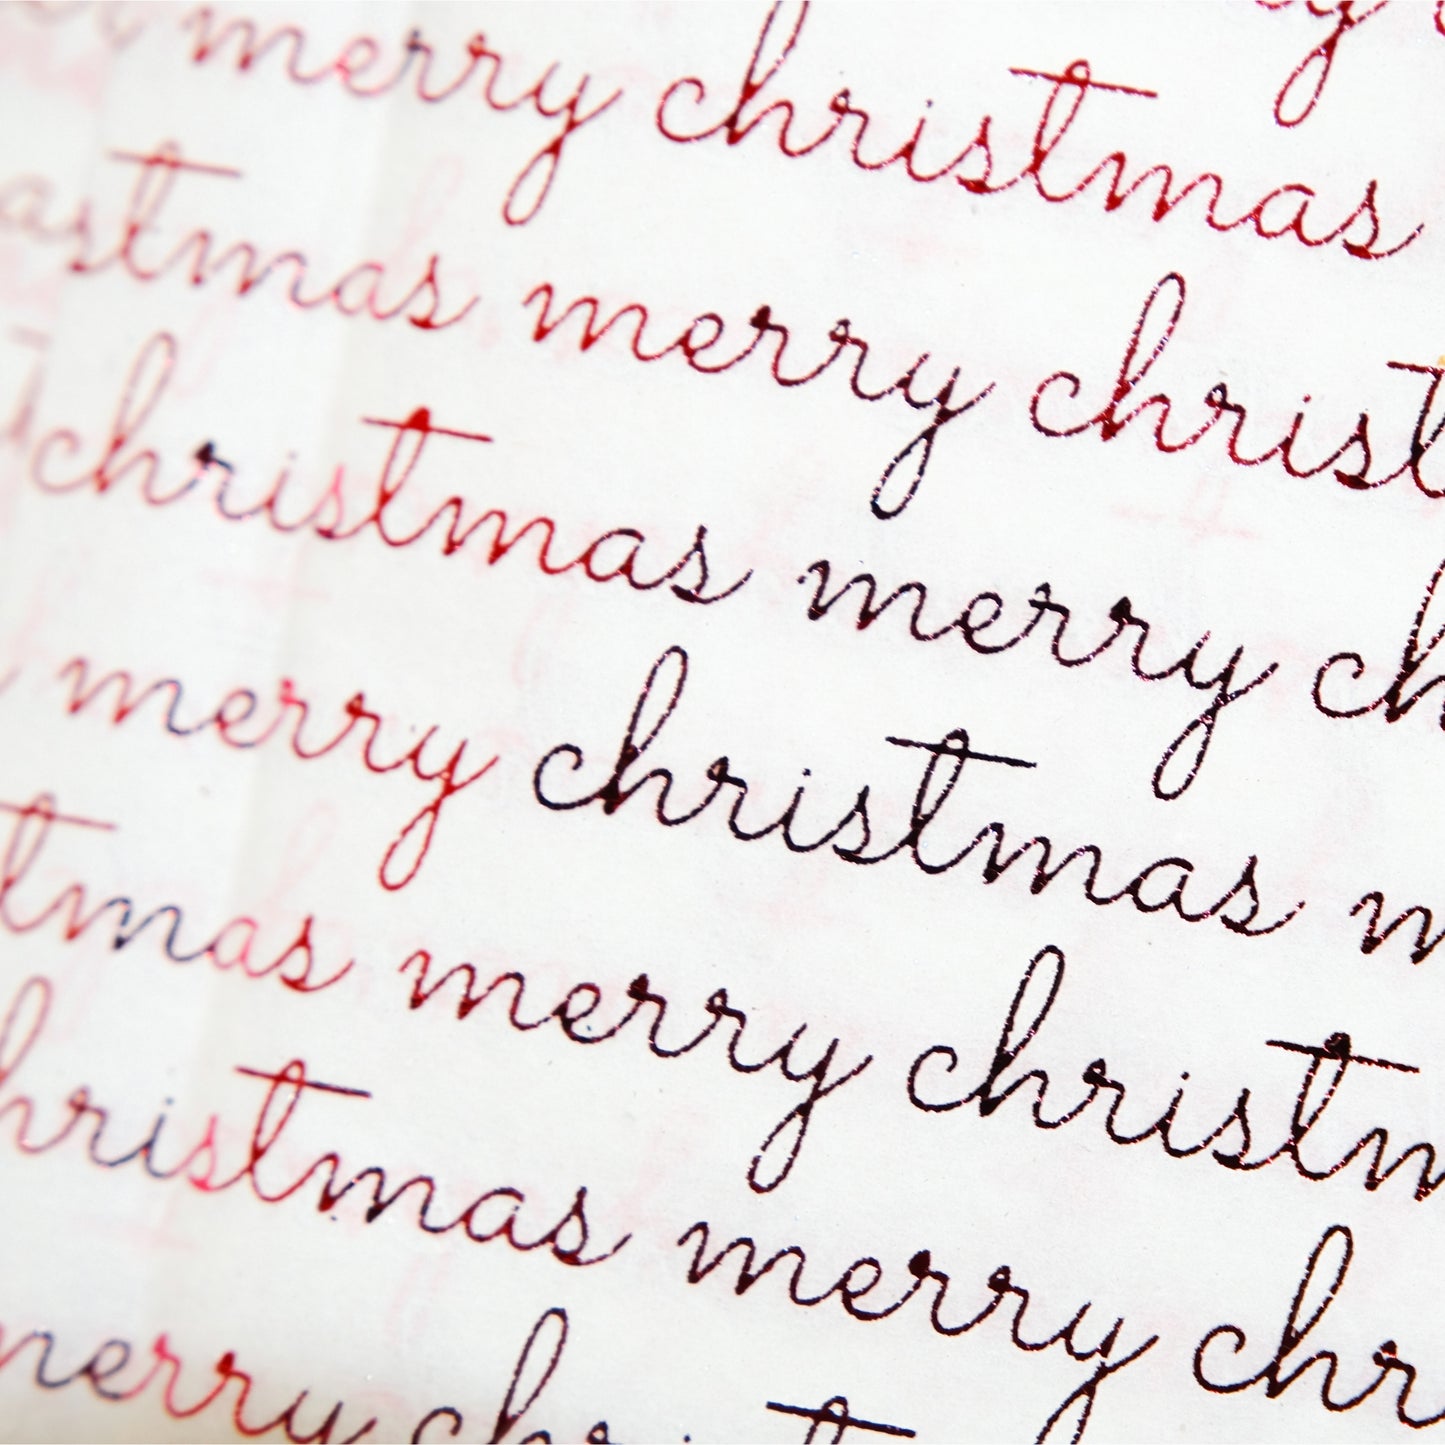 merry christmas
astmas merry christ
christmas merry ch
merry christmas m
tmas merry christm
hristmas merry chr
merry